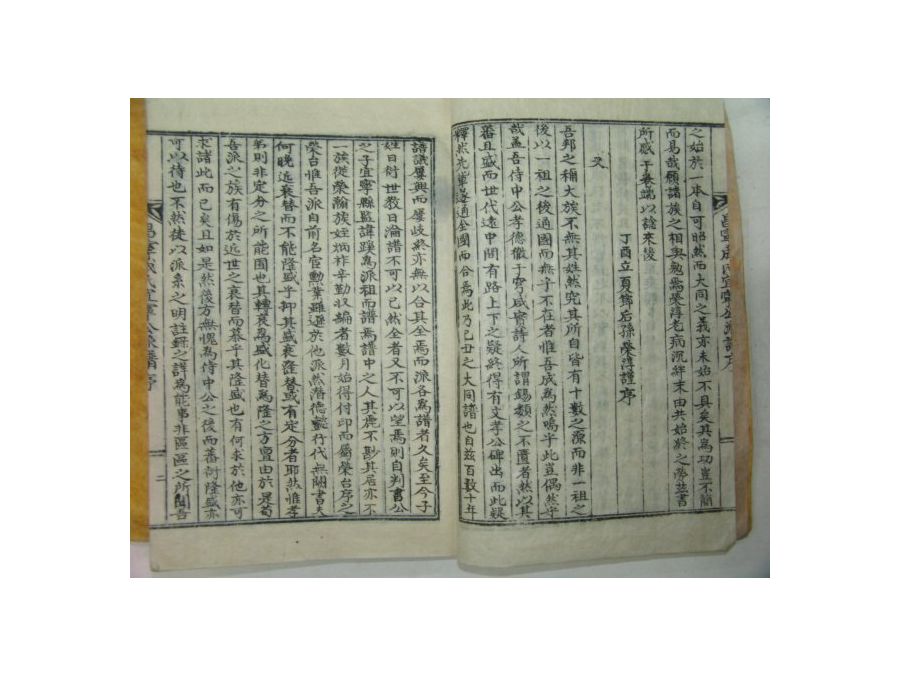 之始於一本自可昭然而大同之義亦未始不具矣其爲功豈不簡
而易哉願諸族之相與勉焉榮淳老病沉綿末由共始終之勞茲書
所感于卷端以諗來後
丁酉立夏節后孫榮淳謹序
又
吾邦之稱大族不無其姓然究其所自皆有十數之源而非一祖之
後以一祖之後遍國而無乎不在者惟吾成爲然嗚乎此豈偶然乎
哉盖吾侍中公孝德徹于穹感實詩人所謂錫類之不匱者然以其
蕃且盛而世代遠中間有路上下之疑終得有文孝公碑出而此疑
釋然先輩遂通全國而合爲此乃己丑之大同譜也自兹百數十年
譜議屢興而屢歧終亦無以合其全焉而派各爲譜者久矣至今子
姓日衍世教日淪譜不可以已然全者又不可以望焉則自判書公
之子宜寧縣監諱蹊爲派祖而譜焉譜中之人其庶不尠其居亦不
一族從榮瀚族姪炳祚辛勤收編者數月始得付印而屬榮台序之
榮台惟吾派自前名官勲業雖遜於他派然潛德懿行代無闕書夫
何晩近衰替而不能隆盛乎抑其盛衰隆替或有定分者耶然惟孝
弟則非定分之所能囿也其轉衰爲盛化替爲隆之方亶由於是苟
吾派之族有傷於近世之衰替而慕乎其隆盛也有何求於他亦可
求諸此而已矣且如是然後方無愧爲侍中公之後而蕃衍隆盛亦
可以待也不然徒以派系之明註錄之詳爲能事非區區之所聞吾
昌寧成氏宜寧公派譜序
二